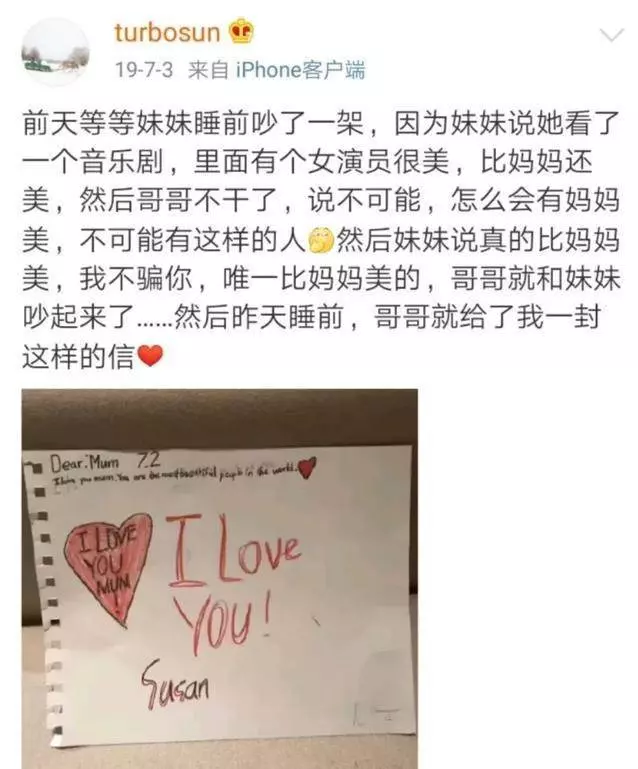 turbosun
19-7-3 来自 iPhone客户端
前天等等妹妹睡前吵了一架，因为妹妹说她看了
一个音乐剧，里面有个女演员很美，比妈妈还
美，然后哥哥不干了，说不可能，怎么会有妈妈
美，不可能有这样的人🤭然后妹妹说真的比妈妈
美，我不骗你，唯一比妈妈美的，哥哥就和妹妹
吵起来了……然后昨天睡前，哥哥就给了我一封
这样的信❤️
Dear.Mum 7.2
you mum. You are the most beautiful people in the world.
I LOVE
YOU
MUN
I Love
YOU!
Susan